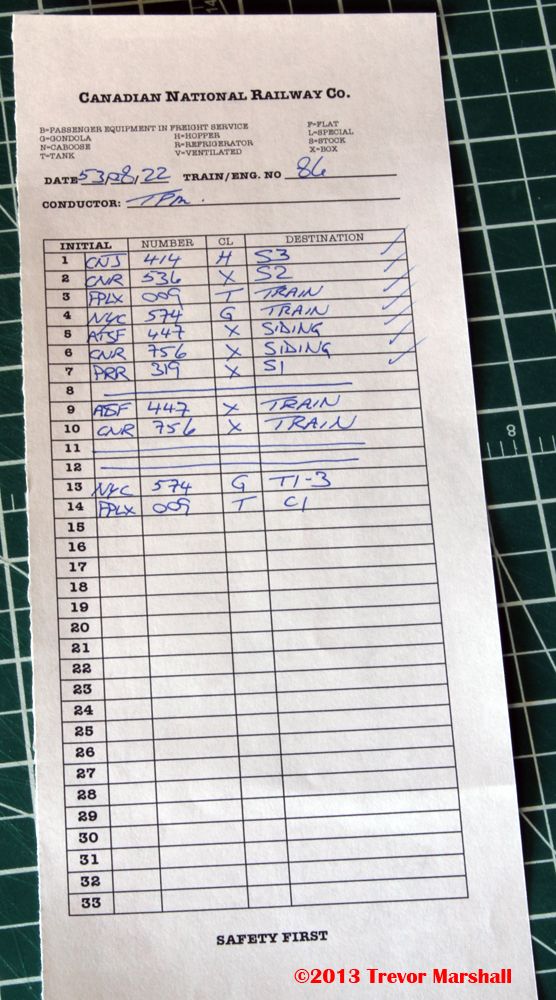 CANADIAN NATIONAL RAILWAY CO.
B=PASSENGER EQUIPMENT IN FREIGHT SERVICE F=FLAT
G=GONDOLA H=HOPPER L=SPECIAL
N=CABOOSE R=REFRIGERATOR S=STOCK
T=TANK V=VENTILATED X=BOX
DATE 53/08/22 TRAIN/ENG. NO 86
CONDUCTOR: TPM.
INITIAL NUMBER CL DESTINATION
1 CNJ 414 H S3
2 CNR 536 X S2
3 PPLX 009 T TRAIN
4 NYC 574 G TRAIN
5 ATSF 447 X SIDING
6 CNR 756 X SIDING
7 PRR 319 X S1
8
9 ATSF 447 X TRAIN
10 CNR 756 X TRAIN
11
12
13 NYC 574 G T1-3
14 PPLX 009 T C1
15
16
17
18
19
20
21
22
23
24
25
26
27
28
29
30
31
32
33
SAFETY FIRST
8
©2013 Trevor Marshall